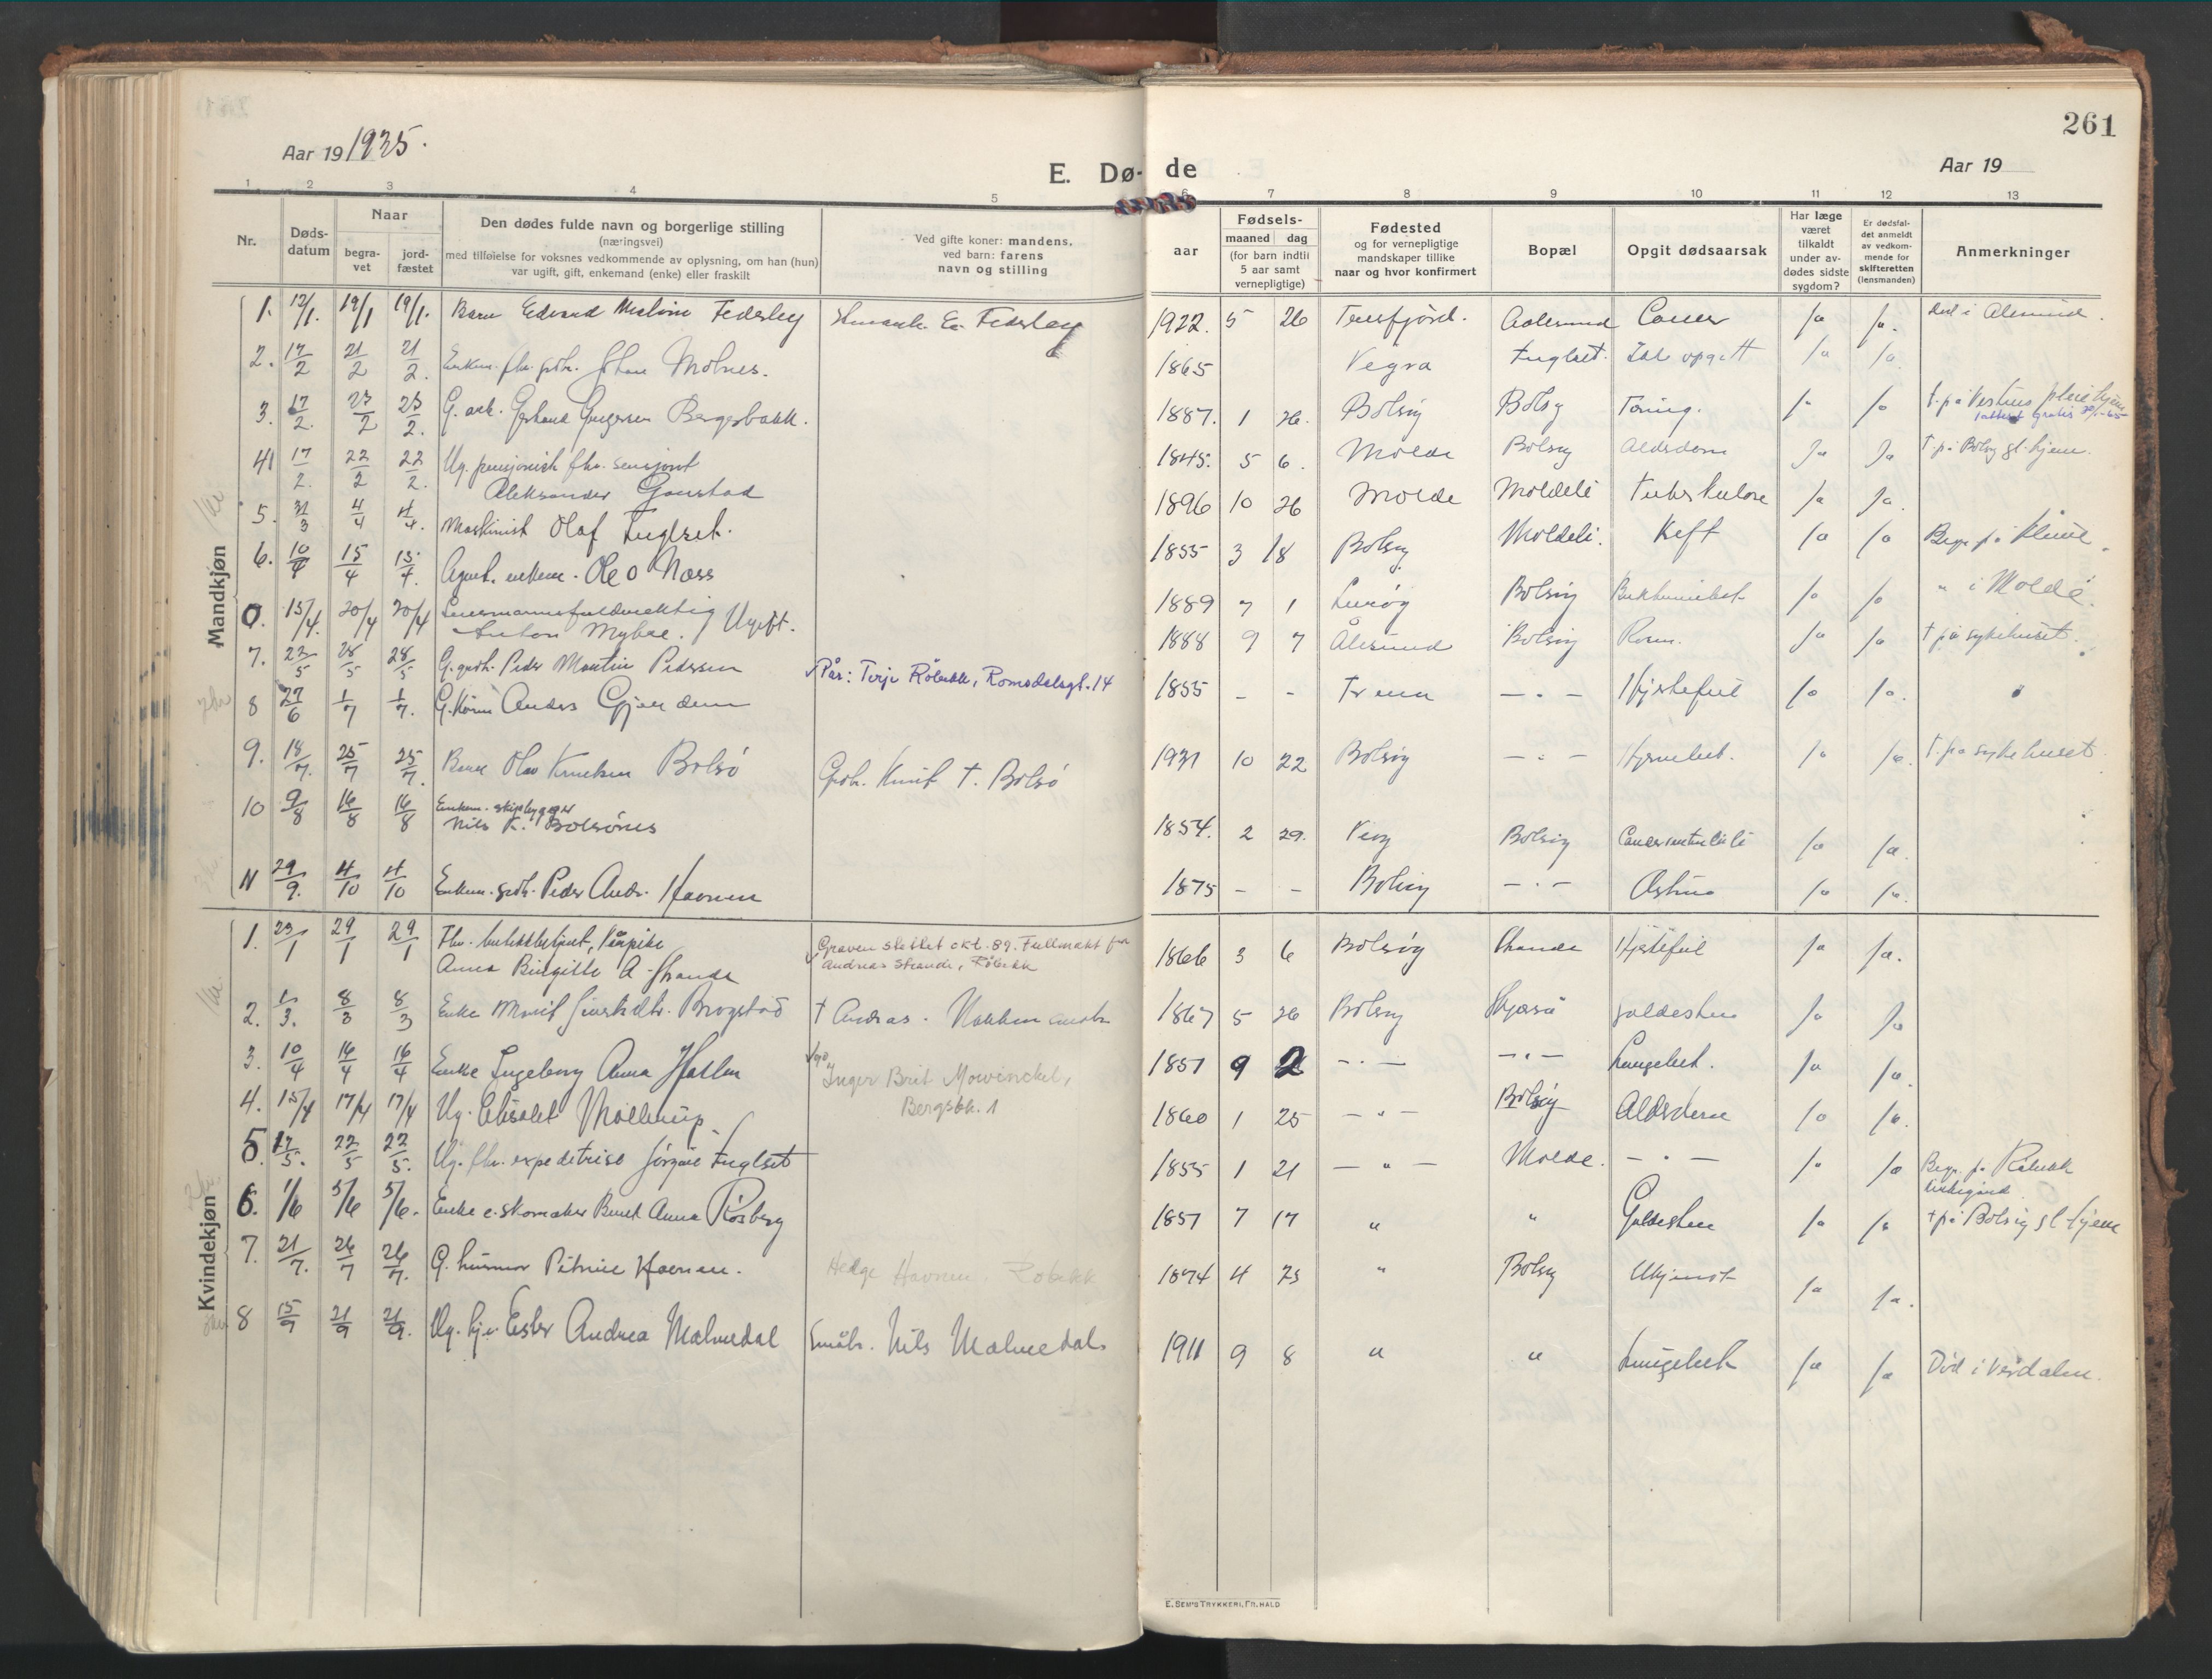 261
Aar 19 1935.
E. Dø- de
Aar 19
1 2 3 4 5 6 7 8 9 10 11 12 13
Nr.
Døds-
datum
Naar
begra-
vet
jord-
fæstet
Den dødes fulde navn og borgerlige stilling
(næringsvei)
med tilføielse for voksnes vedkommende av oplysning, om han (hun)
var ugift, gift, enkemand (enke) eller fraskilt
Ved gifte koner: mandens,
ved barn: farens
navn og stilling
aar
Fødsels-
maaned dag
(for barn indtil
5 aar samt
vernepligtige)
Fødested
og for vernepligtige
mandskaper tillike
naar og hvor konfirmert
Bopæl
Opgit dødsaarsak
Har læge
været
tilkaldt
under av-
dødes sidste
sygdom?
Er dødsfal-
det anmeldt
av vedkom-
mende for
skifteretten
(lensmanden)
Anmerkninger
Mandkjøn
1. 12/1. 19/1 19/1. Barn Edvard Malvin Federley 1922. 5 26 Tresfjord. Aalesund Cancer Ja Ja. død i Alesund.
2. 17/2 21/2 21/2. Johan Molnes. 1865 Vegra Fuglset. Ikke opgitt Ja Ja.
3. 17/2. 23/2 23/2. G. arb. Bergsbakk. 1887. 1 26. Bolsøy Bolsøy Tæring. Ja Ja
4 17/2. 22/2 22/2. Ug. pensjonist fhv.
Aleksander Gaustad 1845. 5 6. Molde Bolsøy Alderdom Ja Ja † på Bolsøy gl. hjem.
5. 31/3 4/4 4/4. Maskinist Olaf Fuglset. 1896 10 26 Molde Moldeli Tuberkulose Ja Ja.
6. 10/4 15/4 15/4. enkem. Ole O Næss 1855 3 18 Bolsøy Moldeli. Kreft Ja Ja Begr. på Kleive.
0. 15/4. 20/4 20/4 Lensmannsfuldmektig
Anton Myhre. / Ugift. 1889 7 1 Lurøy Bolsøy Ja Ja " i Molde.
7. 22/5 28/5 28/5 G. grdb. Peder Martin Pedersen Pår: Terje Røbekk, Romsdalsgt. 14 1888 9 7 Ålesund Bolsøy Ja Ja † på sykehuset.
8 27/6 1/7 1/7. Anders Gjendem 1855 - - Fræna - " - Hjertefeil Ja Ja.
9. 18/7. 25/7 25/7. Barn Olav Knutsen Bolsø Grdb. Knut T. Bolsø 1931 10 22 Bolsøy - " - Ja Ja. † på sykehuset
10 9/8 16/8 16/8 Enkem. skipsbygger
Nils K. Bolsønes 1854. 2 29. Veøy Bolsøy Cancer ventriculi Ja Ja.
11 29/9. 4/10 4/10 Enkem. grdb. Peder Andr. Havnen 1875 - - Bolsøy - " - Astma Ja Ja.
Kvindekjøn
1. 23/1 29/1 29/1 Fhv. butikkbetjent, Ugpike
Anna Birgitte A. Strande Graven slettet okt. 89. Fullmakt fra
Andreas Strande, Røbekk 1866 3 6 Bolsøy Strande Hjertefeil Ja Ja.
2. 1/3. 8/3 8/3 Enke Marit Brogstad † Andreas 1867 5 26 Bolsøy Skjørså galdesten Ja Ja
3. 10/4 16/4 16/4 Enke Ingeborg Anna Hatlen Inger Brit Mowinckel,
Bergsbk. 1 1851 9 2 - " - - " - Lungebet. Ja Ja.
4. 15/4 17/4 17/4 Ug. Elisabet Møllerup. 1860 1 25 - " - Bolsøy Alderdom Ja Ja.
5. 17/5. 22/5 22/5. Ug. fhv. expeditrise Jørgine Fuglset 1855 1 21 - " - Molde. - " - Ja Ja Begr. på Røbekk
kirkegård
6. 1/6 5/6 5/6. Enke e. skomaker Beret Anna Rösberg 1851 7 17 " " Galdesten Ja Ja † på Bolsøy gl. hjem
7. 21/7. 26/7 26/7. G. husmor Petrine Havnen. Helge Havnen. Røbekk 1874 4 23 " Bolsøy Ukjendt Ja Ja.
8 15/9 21/9 21/9. Ug. Ester Andrea Malmedal Småbr. Nils Malmedal 1911 9 8 " " Lungebet. Ja Ja Død i Verdalen.
E. SEM'S TRYKKERI, FR.HALD